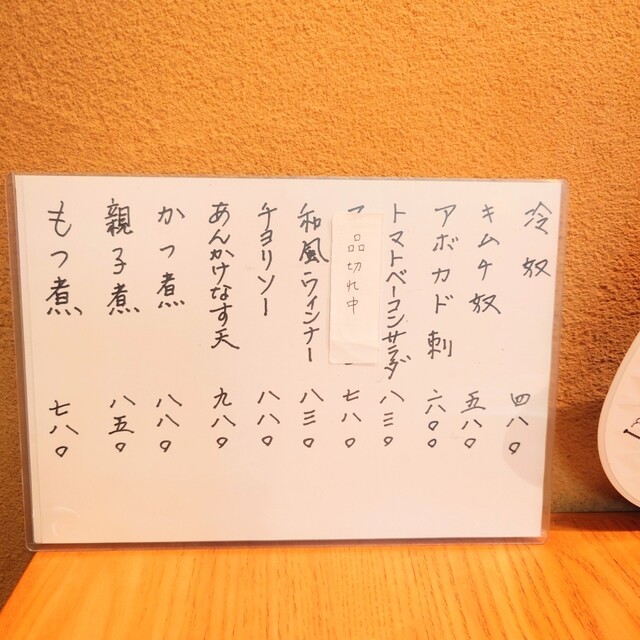 冷奴 四八〇
キムチ奴 五八〇
アボカド刺 六〇〇
トマトベーコンサラダ 八三〇
品切れ中 七八〇
和風ウィンナー 八三〇
チョリソー 八八〇
あんかけなす天 九八〇
かつ煮 八八〇
親子煮 八五〇
もつ煮 七八〇